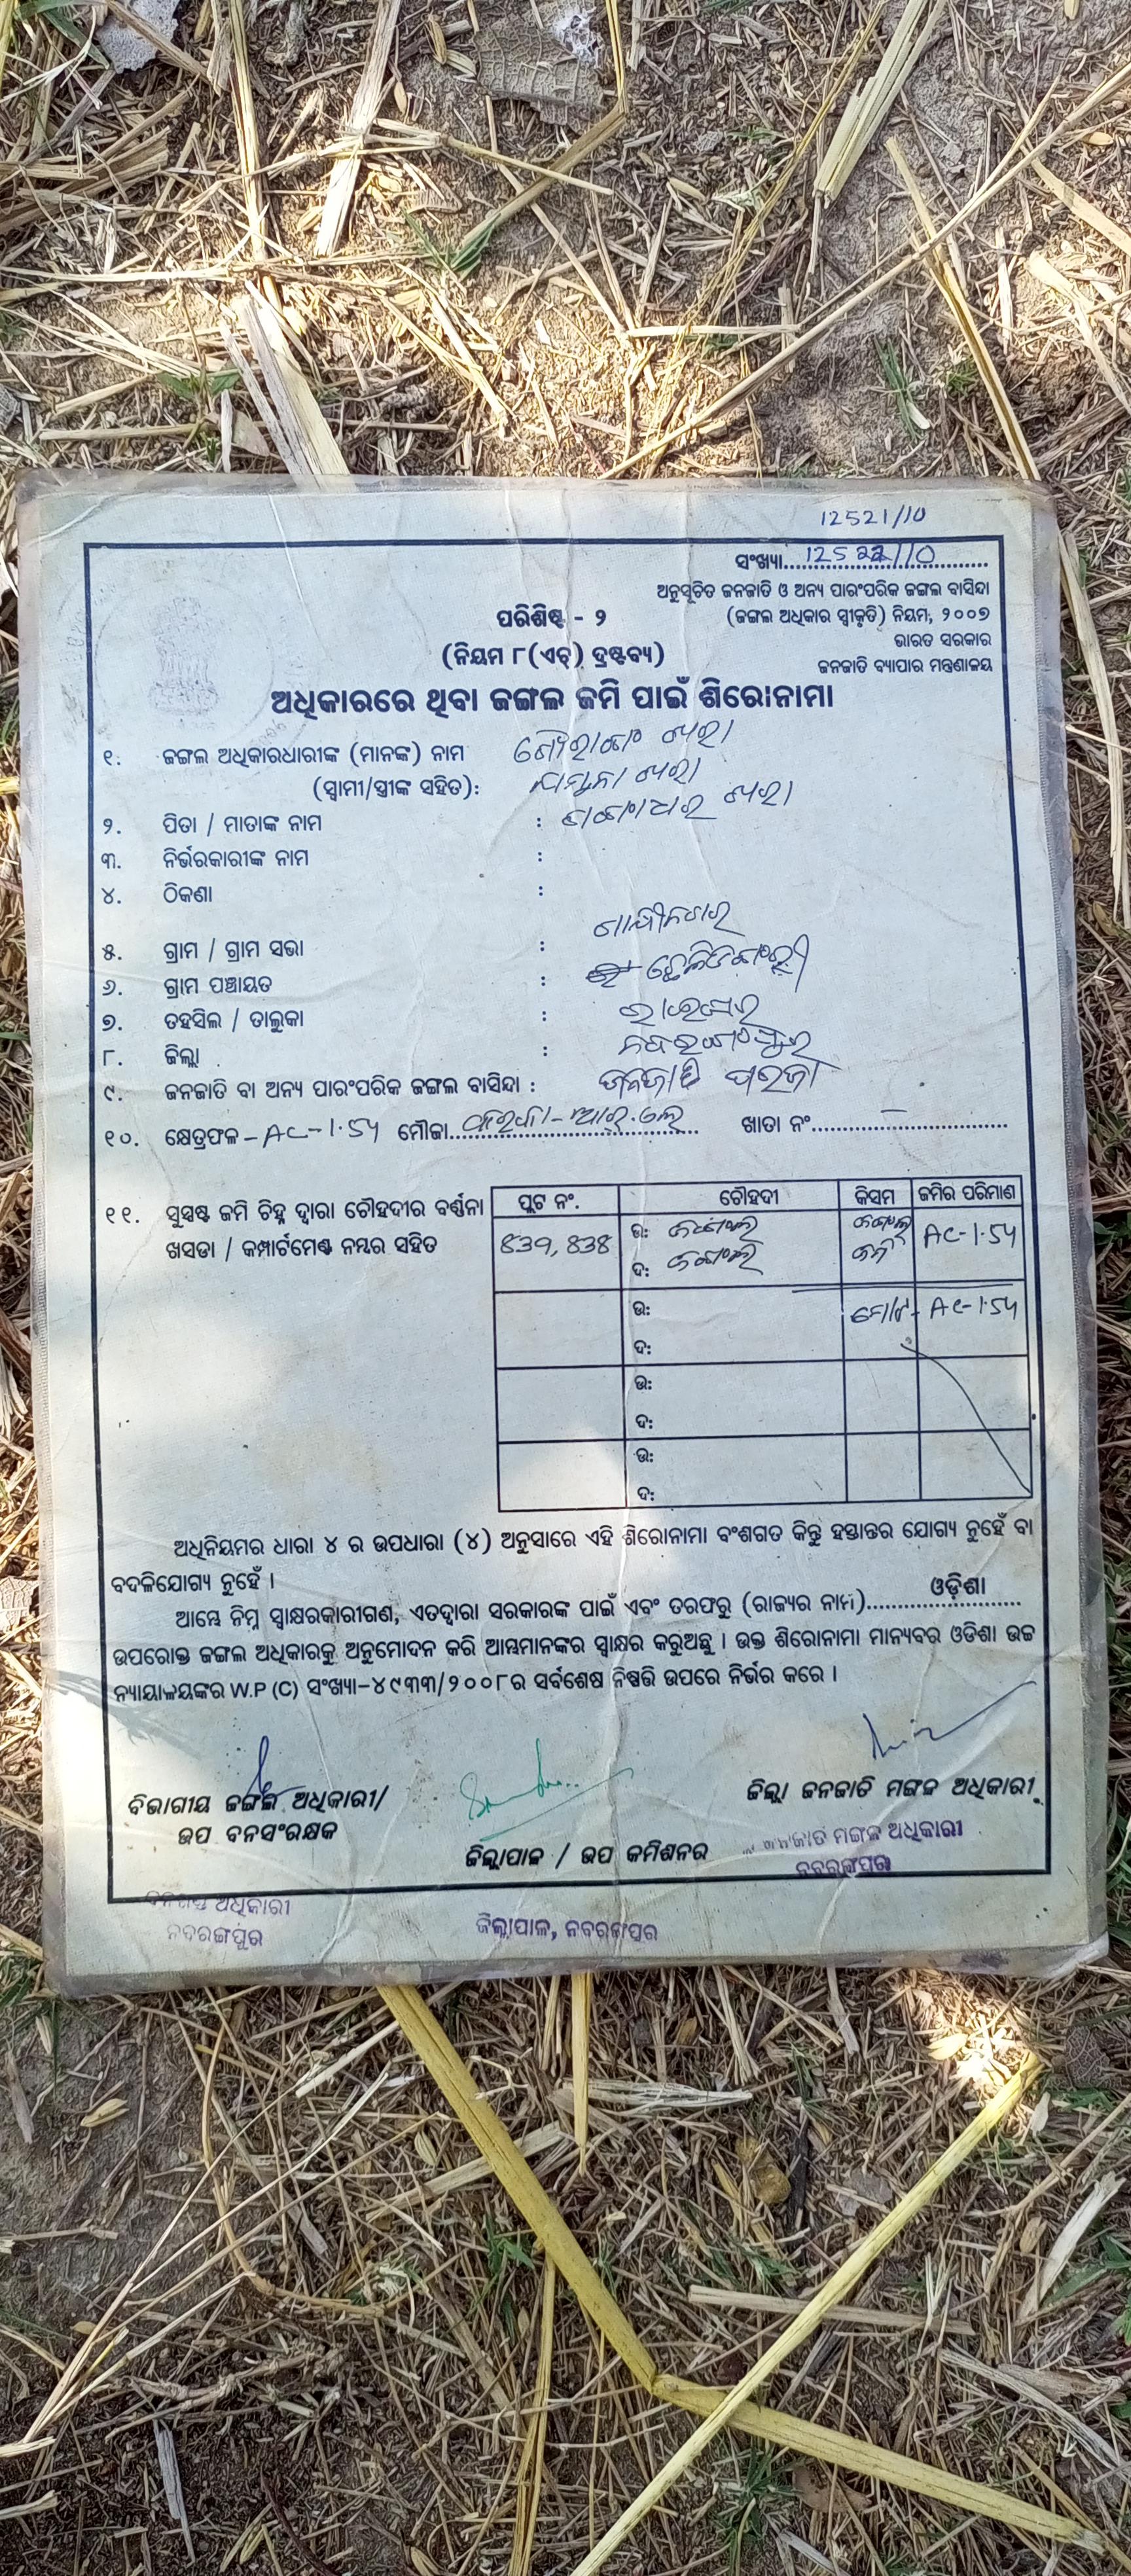 12521/10
ସଂଖ୍ୟା..........................
ଅନୁସୂଚିତ ଜନଜାତି ଓ ଅନ୍ୟ ପାରଂପରିକ ଜଙ୍ଗଲ ବାସିନ୍ଦା
(ଜଙ୍ଗଲ ଅଧିକାର ସ୍ୱୀକୃତି) ନିୟମ, ୨୦୦୭
ଭାରତ ସରକାର
ଜନଜାତି ବ୍ୟାପାର ମନ୍ତ୍ରଣାଳୟ
ପରିଶିଷ୍ଟ - ୨
(ନିୟମ ୮(ଏଚ୍) ଦ୍ରଷ୍ଟବ୍ୟ)
ଅଧିକାରରେ ଥିବା ଜଙ୍ଗଲ ଜମି ପାଇଁ ଶିରୋନାମା
୧. ଜଙ୍ଗଲ ଅଧିକାରଧାରୀଙ୍କ (ମାନଙ୍କ) ନାମ
(ସ୍ୱାମୀ/ସ୍ତ୍ରୀଙ୍କ ସହିତ):
୨. ପିତା / ମାତାଙ୍କ ନାମ :
୩. ନିର୍ଭରକାରୀଙ୍କ ନାମ :
୪. ଠିକଣା :
୫. ଗ୍ରାମ / ଗ୍ରାମ ସଭା :
୬. ଗ୍ରାମ ପଞ୍ଚାୟତ :
୭. ତହସିଲ / ତାଲୁକା :
୮. ଜିଲ୍ଲା : ନବରଙ୍ଗପୁର
୯. ଜନଜାତି ବା ଅନ୍ୟ ପାରଂପରିକ ଜଙ୍ଗଲ ବାସିନ୍ଦା : ଜନଜାତି ପରଜା
୧୦. କ୍ଷେତ୍ରଫଳ - AC-1.54 ମୌଜା.......................... ଖାତା ନଂ..........................
୧୧. ସୁସ୍ପଷ୍ଟ ଜମି ଚିହ୍ନ ଦ୍ୱାରା ଚୌହଦୀର ବର୍ଣ୍ଣନା
ଖସଡା / କମ୍ପାର୍ଟମେଣ୍ଟ ନମ୍ବର ସହିତ
ପ୍ଲଟ ନଂ. ଚୌହଦୀ କିସମ ଜମିର ପରିମାଣ
839, 838 ଉ: ଜଙ୍ଗଲ ଜଙ୍ଗଲ AC-1.54
ଦ: ଜଙ୍ଗଲ ଜମି
ଉ: ମୋଟ- AC-1.54
ଦ:
ଉ:
ଦ:
ଉ:
ଦ:
ଅଧିନିୟମର ଧାରା ୪ ର ଉପଧାରା (୪) ଅନୁସାରେ ଏହି ଶିରୋନାମା ବଂଶଗତ କିନ୍ତୁ ହସ୍ତାନ୍ତର ଯୋଗ୍ୟ ନୁହେଁ ବା
ବଦଳିଯୋଗ୍ୟ ନୁହେଁ ।
ଆମ୍ଭେ ନିମ୍ନ ସ୍ୱାକ୍ଷରକାରୀଗଣ, ଏତଦ୍ୱାରା ସରକାରଙ୍କ ପାଇଁ ଏବଂ ତରଫରୁ (ରାଜ୍ୟର ନାମ)......ଓଡ଼ିଶା......
ଉପରୋକ୍ତ ଜଙ୍ଗଲ ଅଧିକାରକୁ ଅନୁମୋଦନ କରି ଆମ୍ଭମାନଙ୍କର ସ୍ୱାକ୍ଷର କରୁଅଛୁ । ଉକ୍ତ ଶିରୋନାମା ମାନ୍ୟବର ଓଡିଶା ଉଚ୍ଚ
ନ୍ୟାୟାଳୟଙ୍କର W.P (C) ସଂଖ୍ୟା-୪୯୩୩/୨୦୦୮ର ସର୍ବଶେଷ ନିଷ୍ପତ୍ତି ଉପରେ ନିର୍ଭର କରେ ।
ବିଭାଗୀୟ ଜଙ୍ଗଲ ଅଧିକାରୀ/
ଉପ ବନସଂରକ୍ଷକ
ଜିଲ୍ଲାପାଳ / ଉପ କମିଶନର
ଜିଲ୍ଲା ଜନଜାତି ମଙ୍ଗଳ ଅଧିକାରୀ
ଜନଜାତି ମଙ୍ଗଳ ଅଧିକାରୀ
ନବରଙ୍ଗପୁର
ଅଧିକାରୀ
ନବରଙ୍ଗପୁର
ଜିଲ୍ଲାପାଳ, ନବରଙ୍ଗପୁର